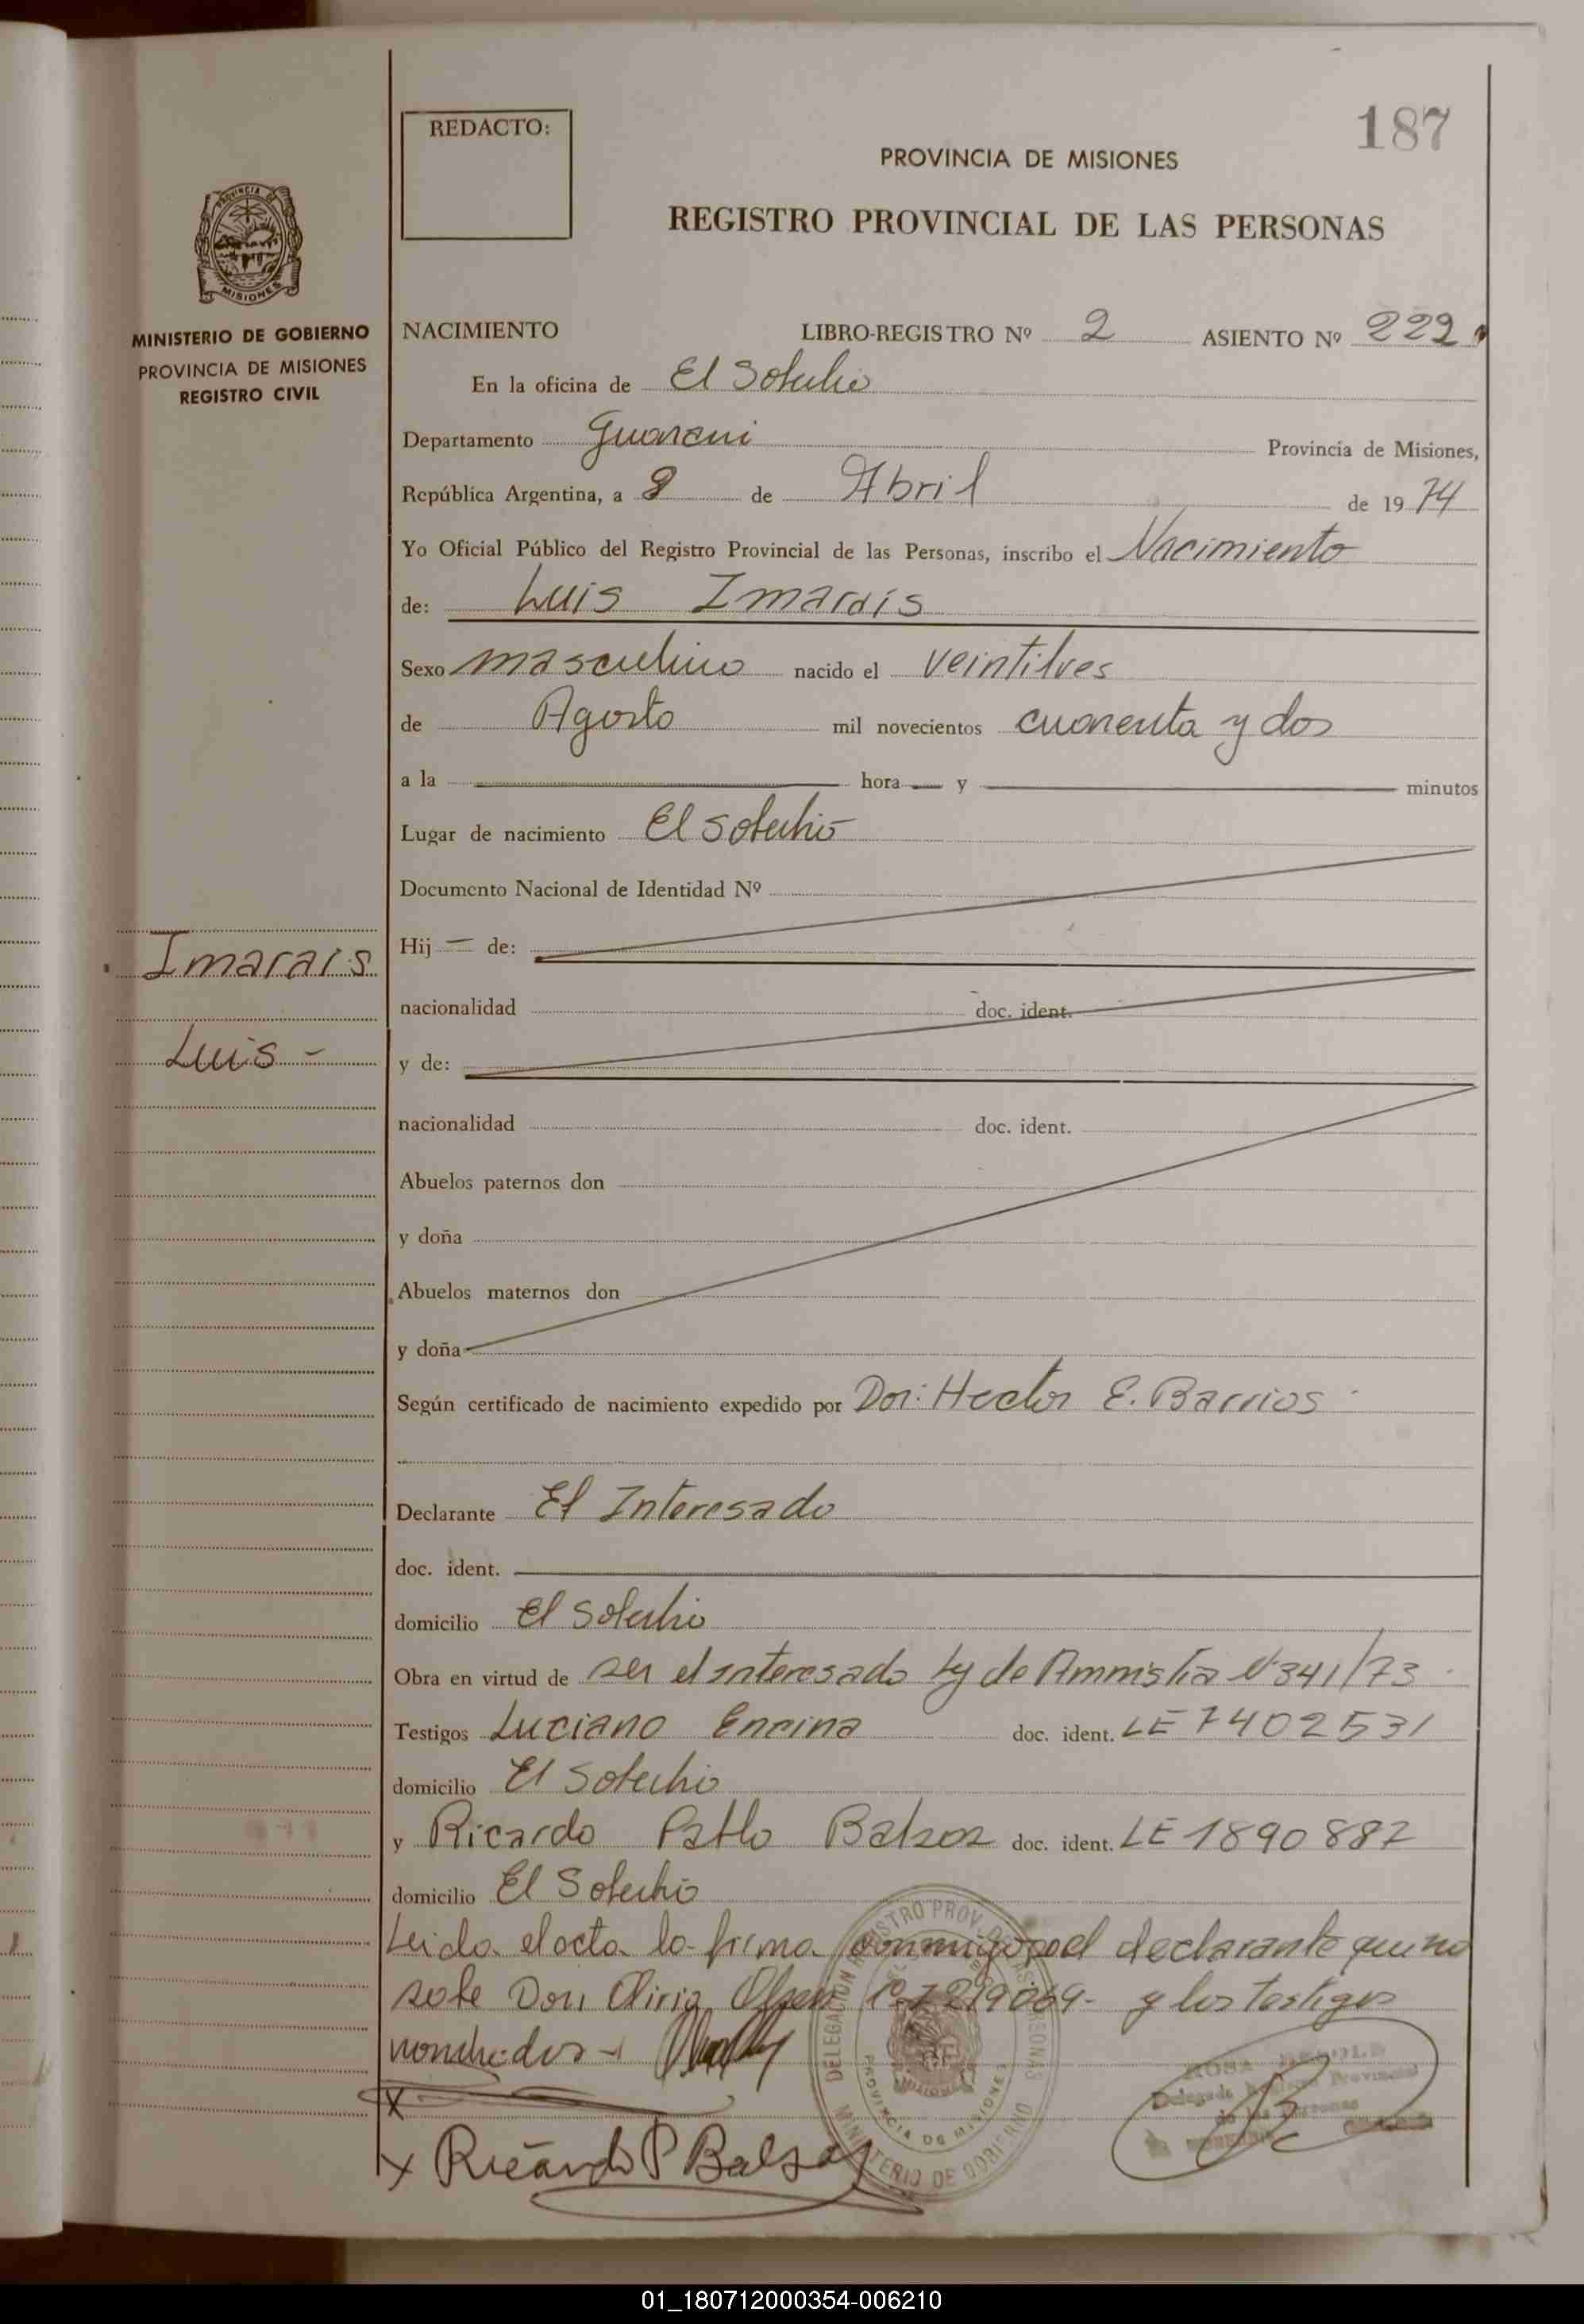 187
REDACTO:
PROVINCIA DE MISIONES
REGISTRO PROVINCIAL DE LAS PERSONAS
PROVINCIA DE
MISIONES
MINISTERIO DE GOBIERNO
PROVINCIA DE MISIONES
REGISTRO CIVIL
NACIMIENTO LIBRO-REGISTRO Nº 2 ASIENTO Nº 222
En la oficina de El Soberbio
Departamento Guarani Provincia de Misiones,
República Argentina, a 8 de Abril de 1974
Yo Oficial Público del Registro Provincial de las Personas, inscribo el Nacimiento
de: Luis Imarais
Sexo masculino nacido el veintitres
de Agosto mil novecientos cuarenta y dos
a la hora y minutos
Lugar de nacimiento El Soberbio
Documento Nacional de Identidad Nº
Imarais
Hij — de:
nacionalidad doc. ident.
Luis -
y de:
nacionalidad doc. ident.
Abuelos paternos don
y doña
Abuelos maternos don
y doña
Según certificado de nacimiento expedido por Don: Hector E. Barrios
Declarante El Interesado
doc. ident.
domicilio El Soberbio
Obra en virtud de ser el interesado Ly de Amnistia Nº 341/73
Testigos Luciano Encina doc. ident. LE 7402531
domicilio El Soberbio
y Ricardo Pablo Balzoz doc. ident. LE 1890887
domicilio El Soberbio
Leida el acta la firma conmigo por el declarante que no
sabe Don y los testigos
nombrados -
X
X Ricardo P Balzoz
DELEGACION REGISTRO PROV. DE LAS PERSONAS
PROVINCIA DE MISIONES
MINISTERIO DE GOBIERNO
Delegada Registro Provincial
de las Personas
01_180712000354-006210